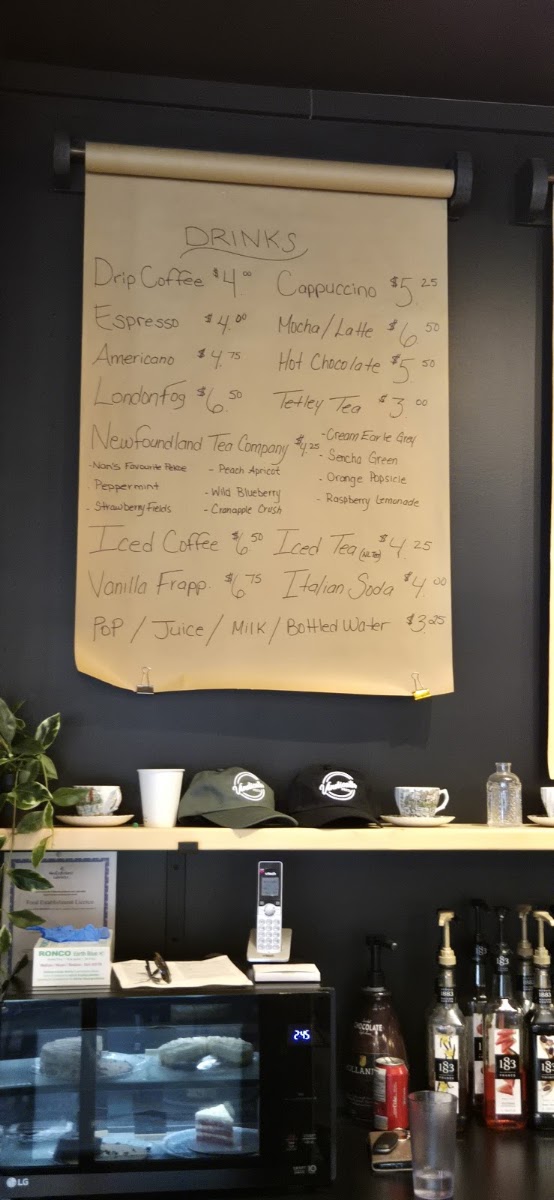 DRINKS
Drip Coffee $4.00
Cappuccino $5.25
Espresso $4.00
Mocha/Latte $6.50
Americano $4.75
Hot Chocolate $5.50
London Fog $6.50
Tetley Tea $3.00
Newfoundland Tea Company $4.25
- Cream Earle Grey
- Sencha Green
- Nan's Favourite
- Peach Apricot
- Orange Popsicle
. Peppermint
- Wild Blueberry
- Raspberry Lemonade
- Strawberry Fields
- Cranapple Crush
Iced Coffee $6.50
Iced Tea $4.25
Vanilla Frapp. $6.75
Italian Soda $4.00
Pop / Juice / Milk / Bottled Water $3.25
Food Establishment Licence
RONCO
vtech
2:45
LG
CHOCOLATE
1883
1883
1883
1883